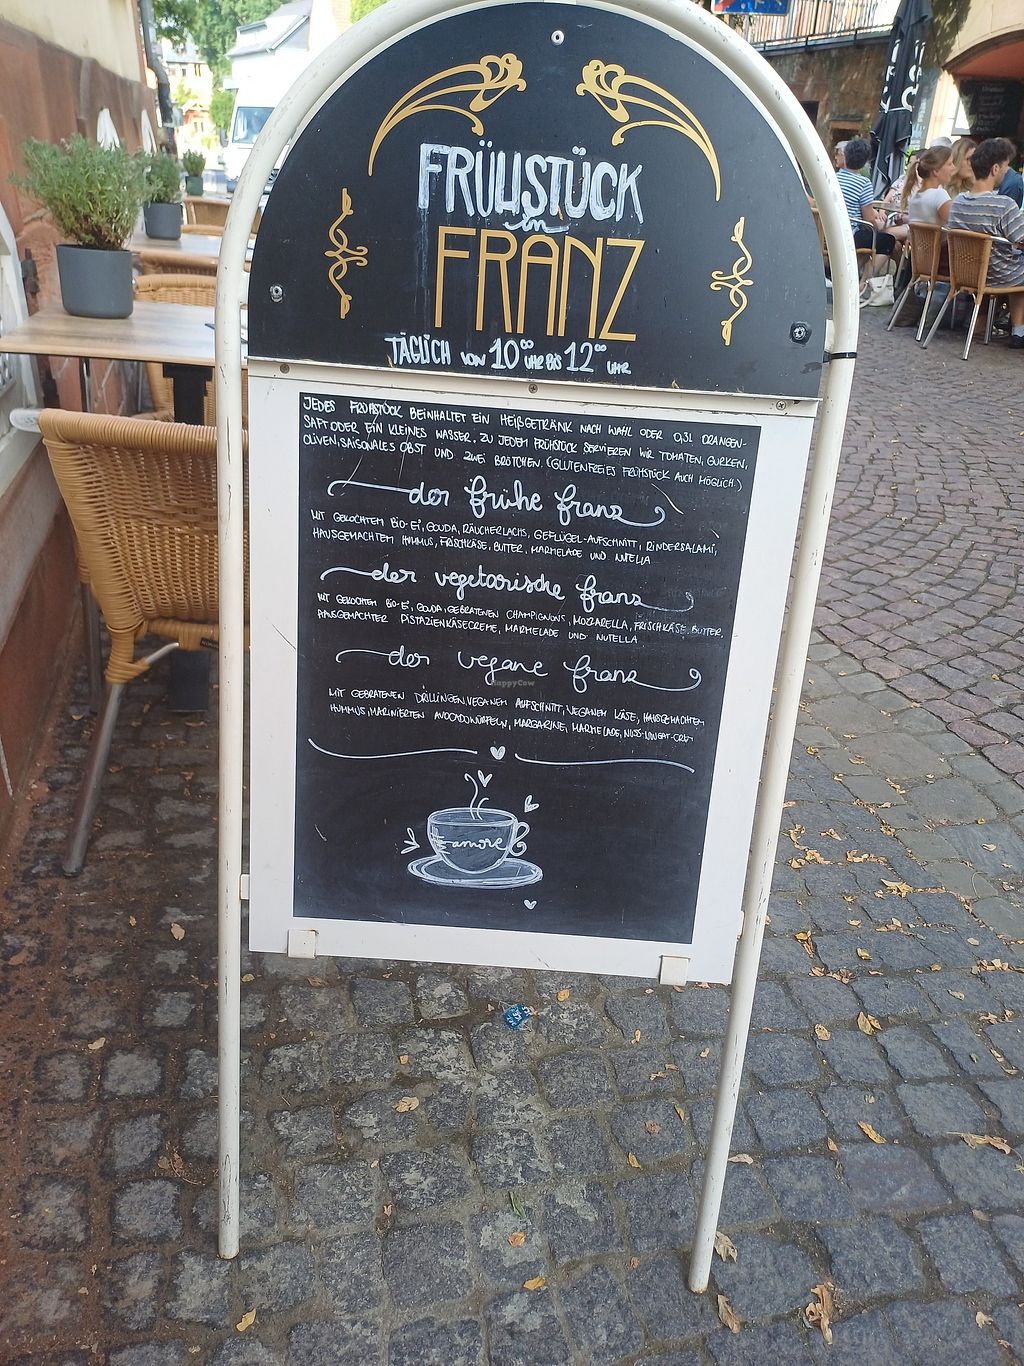 FRÜHSTÜCK
im
FRANZ
TÄGLICH VON 10⁰⁰ UHR BIS 12⁰⁰ UHR
JEDES FRÜHSTÜCK BEINHALTET EIN HEIßGETRÄNK NACH WAHL ODER 0,3L ORANGEN-
SAFT ODER EIN KLEINES WASSER. ZU JEDEM FRÜHSTÜCK SERVIEREN WIR TOMATEN, GURKEN,
OLIVEN, SAISONALES OBST UND ZWEI BRÖTCHEN. (GLUTENFREIES FRÜHSTÜCK AUCH MÖGLICH.)
der frühe franz
MIT GEKOCHTEM BIO-EI, GOUDA, RÄUCHERLACHS, GEFLÜGEL-AUFSCHNITT, RINDERSALAMI,
HAUSGEMACHTEM HUMMUS, FRISCHKÄSE, BUTTER, MARMELADE UND NUTELLA
der vegetarische franz
MIT GEKOCHTEM BIO-EI, GOUDA, GEBRATENEN CHAMPIGNONS, MOZZARELLA, FRISCHKÄSE, BUTTER,
HAUSGEMACHTER PISTAZIENKÄSECREME, MARMELADE UND NUTELLA
der vegane franz
HappyCow
MIT GEBRATENEN DRILLINGEN, VEGANEM AUFSCHNITT, VEGANEM KÄSE, HAUSGEMACHTEM
HUMMUS, MARINIERTEN AVOCADOWÜRFELN, MARGARINE, MARMELADE, NUSS-NOUGAT-CREM
amore